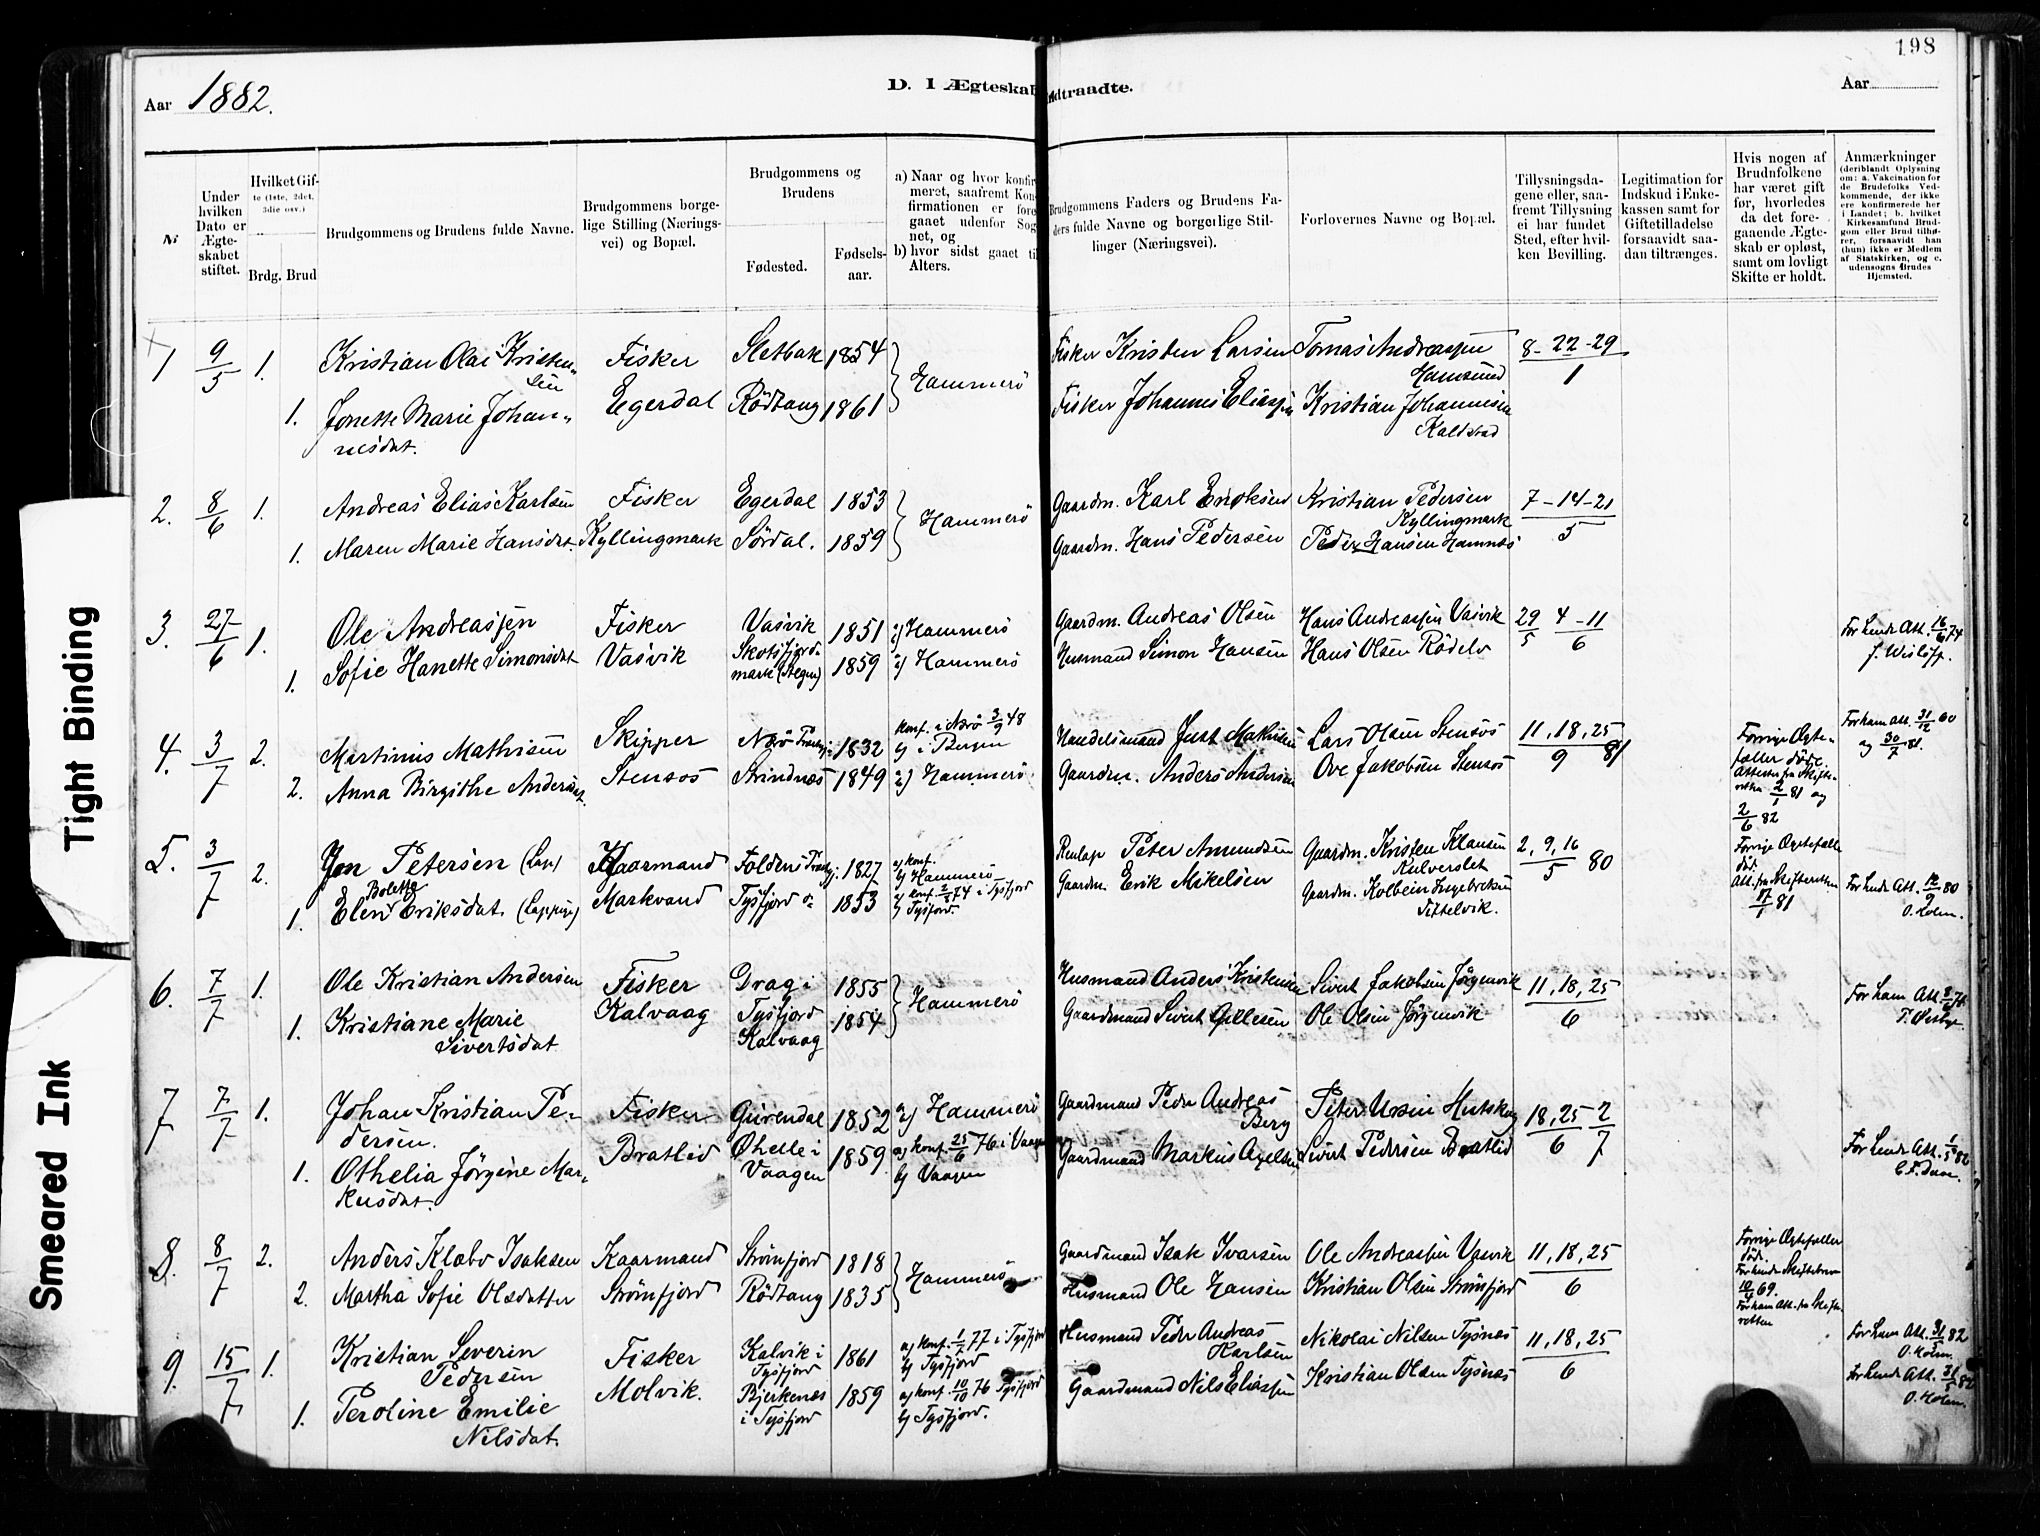 198
Aar 1882.
D. I Ægteskab Indtraadte.
Aar
Nr
Under hvilken Dato er Ægteskabet stiftet.
Hvilket Gifte (1ste, 2det, 3die osv.)
Brdg. Brud
Brudgommens og Brudens fulde Navne.
Brudgommens borgelige Stilling (Næringsvei) og Bopæl.
Brudgommens og Brudens
Fødested.
Fødselsaar.
a) Naar og hvor konfirmeret, saafremt Konfirmationen er foregaaet udenfor Sognet, og
b) hvor sidst gaaet til Alters.
Brudgommens Faders og Brudens Faders fulde Navne og borgerlige Stillinger (Næringsvei).
Forlovernes Navne og Bopæl.
Tillysningsdagene eller, saafremt Tillysning ei har fundet Sted, efter hvilken Bevilling.
Legitimation for Indskud i Enkekassen samt for Giftetilladelse forsaavidt saadan tiltrænges.
Hvis nogen af Brudnfolkene har været gift før, hvorledes da det foregaaende Ægteskab er opløst, samt om lovligt Skifte er holdt.
Anmærkninger (deriblandt Oplysning om: a. Vakcination for de Brudefolks Vedkommende, der ikke ere konfirmerede her i Landet; b. hvilket Kirkesamfund Brudgom eller Brud tilhører, forsaavidt han (hun) ikke er Medlem af Statskirken, og c. udensogns Brudes Hjemsted.
1 9/5 1. Kristian Olai Kristensen Fisker Sletbak 1854 Hammerø Fisker Kristen Larsen Tomas Andreassen Hamsund 8-22-29/1
1. Jonette Marie Johannesdat. Egerdal Rödtang 1861 Fisker Johannes Eliassen Kristian Johannesen Kaldstad
2. 8/6 1. Andreas Elias Karlsen Fisker Egerdal 1853 Hammerø Gaardm. Karl Eriksen Kristian Pedersen Kyllingmark 7-14-21/5
1. Maren Marie Hansdat. Kyllingmark Sørdal. 1859 Gaardm. Hans Pedersen Peder Hansen Hamnes
3. 27/6 1. Ole Andreassen Fisker Vasvik 1851 Hammerø Gaardm. Andreas Olsen Hans Andreassen Vasvik 29/5 4-11/6 For hende Att. 16/6 74
1. Sofie Hanette Simonsdat Vasvik Skotsfjordmark (Stegen) 1859 Hammerø Husmand Simon Hansen Hans Olsen Rödelv
4. 3/7 2. Martinus Mathisen Skipper Nærö 1832 konf. i Nærö 3/9 48 b) i Bergen Handelsmand Just Mathisen Lars Olsen Stensos 11, 18, 25/9 81 Forrige Ægtefæller døde. Attester fra Skifteretten 2/1 81 og 2/6 82 For ham att. 31/12 60 og 30/7 81.
2. Anna Birgithe Andersdat. Stensos Strindnæs 1849 Hammerø Gaardm. Anders Andersen Ove Jakobsen Stensos
5. 3/7 2. Jon Petersen (Lap) Kaarmand Foldens 1827 a) konf. b) Hammerø Renlap Peter Amundsen Gaardm. Kristen Klausen Kulverslet 2, 9, 16/5 80 Forrige Ægtefælle död. Att. fra Skifteretten 17/1 81
1. Elen Bolette Eriksdat. (Lappin) Markvand Tysfjord 1853 a) konf. 2/8 74 i Tysfjord b) Tysfjord. Gaardm. Erik Mikelsen Gaardm. Kolbein Ingebrektsen Tiltelvik. For hende Att. 12/9 80 O. Holm.
6. 7/7 1. Ole Kristian Andersen Fisker Drag i Tysfjord 1855 Hammerø Husmand Anders Kristensen Sivert Jakobsen Jørgenvik 11, 18, 25/6
1. Kristiane Marie Sivertsdat Kalvaag Kalvaag 1854 Gaardmand Sivert Gillesen Ole Olsen Jørgenvik For ham Att. 76
7 7/7 1. Johan Kristian Pedersen. Fisker Gurendal 1852 Hammerø Gaardmand Peder Andreas Berg Peter Ursin 18, 25/6 2/7
1. Othelia Jørgine Markusdat. Bratlid Øhelle i Vaagen 1859 a) konf. 25/6 76 i Vaagen b) Vaagen Gaardmand Markus Axelsen Sivert Pedersen Bratlid For hende Att. 1/5 82
8. 8/7 2. Anders Klæbo Isaksen Kaarmand Strømfjord 1818 Hammerø Gaardmand Isak Ivarsen Ole Andreassen Vasvik 11, 18, 25/6 Forrige Ægtefæller döde. For hende Skiftebrev 10/4 69. For ham Att. fra Skifteretten
2. Martha Sofie Olsdatter Strømfjord Rödtang 1835 Husmand Ole Hansen Kristian Olsen Strømfjord
9. 15/7 1. Kristian Severin Pedersen Fisker Kalvik i Tysfjord 1861 a) konf. 1/7 77 i Tysfjord b) Tysfjord Husmand Peder Andreas Karlsen Nikolai Nilsen Tysnes 11, 18, 25/6 For ham Att. 31/5 82 O. Holm.
1. Peroline Emilie Nilsdat. Molvik. Bjerkenæs i Tysfjord 1859 a) konf. 10/10 76 Tysfjord b) Tysfjord. Gaardmand Nils Eliassen Kristian Olsen Tysnes For hende Att. 31/5 82 O. Holm.
Tight Binding
Smeared Ink